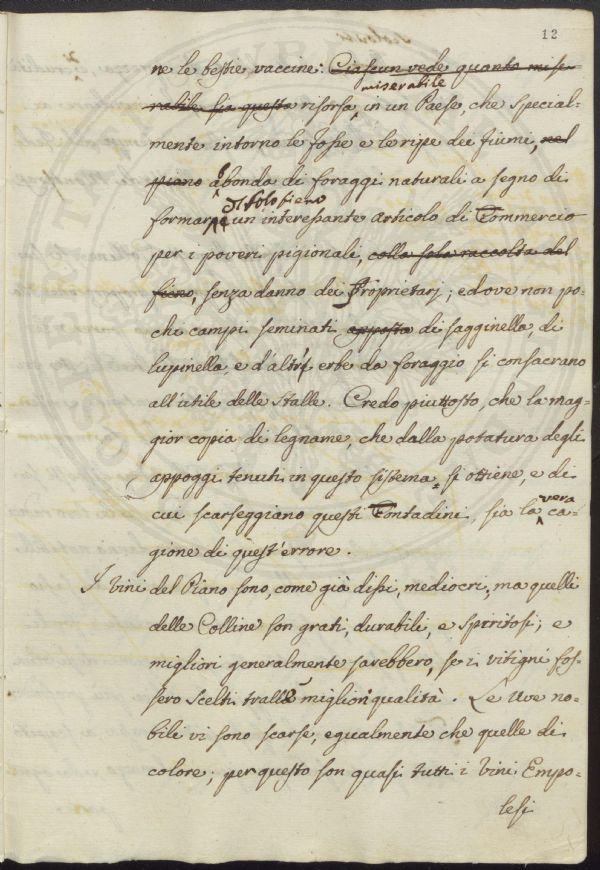 12
ne le bestie vaccine: Ciascun vede quanto mise-
miserabile
rabile sia questa risorsa in un Paese, che special-
mente intorno le fosse e le ripe dei fiumi, nel
piano abonda di foraggi naturali a segno di
di solo fieno
formarne un interessante articolo di Commercio
per i poveri pigionali, colla sola raccolta del
fieno, senza danno dei Proprietarj; ed ove non po-
chi campi seminati apposta di sagginella, di
lupinella, e d'altre erbe da foraggio si consacrano
all'utile delle Stalle. Credo piuttosto, che la mag-
gior copia di legname, che dalla potatura degli
appoggi tenuti in questo sistema, si ottiene, e di
vera
cui scarseggiano questi Contadini, sia la ca-
gione di quest'errore.
I Vini del Piano sono, come già dissi, mediocri, ma quelli
delle Colline son grati, durabili, e spiritosi; e
migliori generalmente sarebbero, se i vitigni fos-
sero scelti tralle migliori qualità. Le Uve no-
bili vi sono scarse, egualmente che quelle di
colore; per questo son quasi tutti i Vini Empo-
lesi